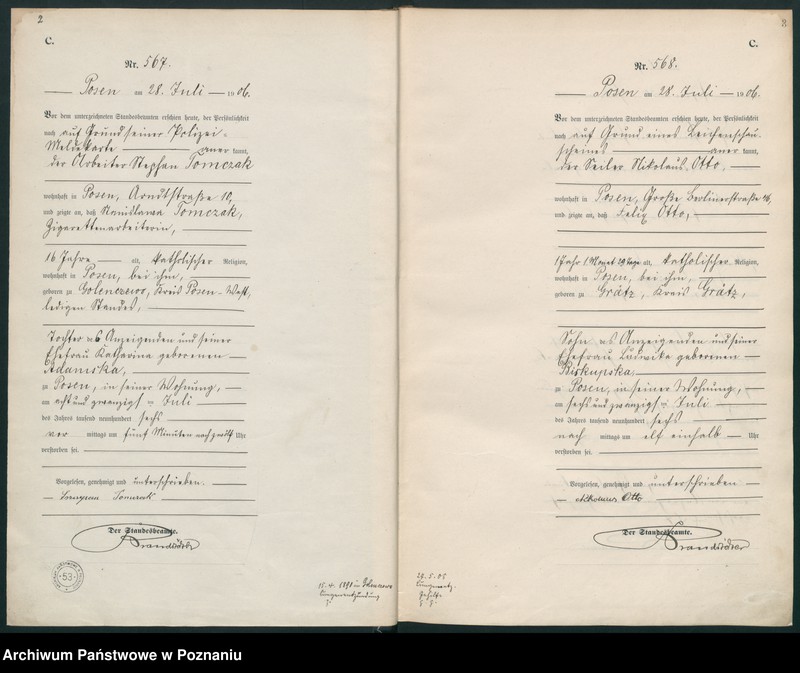 2
C.
Nr. 567.
Posen am 28. Juli 1906.
Vor dem unterzeichneten Standesbeamten erschien heute, der Persönlichkeit
nach auf Grund seiner Polizei-
Meldekarte aner kannt,
der Arbeiter Stephan Tomczak
wohnhaft in Posen, Arndtstraße 10,
und zeigte an, daß Stanislawa Tomczak,
Zigarettenarbeiterin,
16 Jahre alt, katholischer Religion,
wohnhaft in Posen, bei ihm,
geboren zu Golenczewo, Kreis Posen-West,
ledigen Standes,
Tochter des Anzeigenden und seiner
Ehefrau Katharina geborenen
Adamska,
zu Posen, in seiner Wohnung,
am acht und zwanzigsten Juli
des Jahres tausend neunhundert sechs
vor mittags um fünf Minuten nach zwölf Uhr
verstorben sei.
Vorgelesen, genehmigt und unterschrieben.
Tomczak
Der Standesbeamte.
53
15. 4. 1891 in
Lungenentzündung
3
C.
Nr. 568.
Posen am 28. Juli 1906.
Vor dem unterzeichneten Standesbeamten erschien heute, der Persönlichkeit
nach auf Grund eines Leichenschau-
scheines aner kannt,
der Seiler Nikolaus Otto,
wohnhaft in Posen, Große Berlinerstraße
und zeigte an, daß Felix Otto,
1 Jahr 1 Monat 29 Tage alt, katholischer Religion,
wohnhaft in Posen, bei ihm,
geboren zu Grätz, Kreis Grätz,
Sohn des Anzeigenden und seiner
Ehefrau Ludwika geborenen
Biskupska,
zu Posen, in seiner Wohnung,
am sechs und zwanzigsten Juli
des Jahres tausend neunhundert sechs
nach mittags um elf einhalb Uhr
verstorben sei.
Vorgelesen, genehmigt und unterschrieben
Nikolaus Otto
Der Standesbeamte.
Archiwum Państwowe w Poznaniu